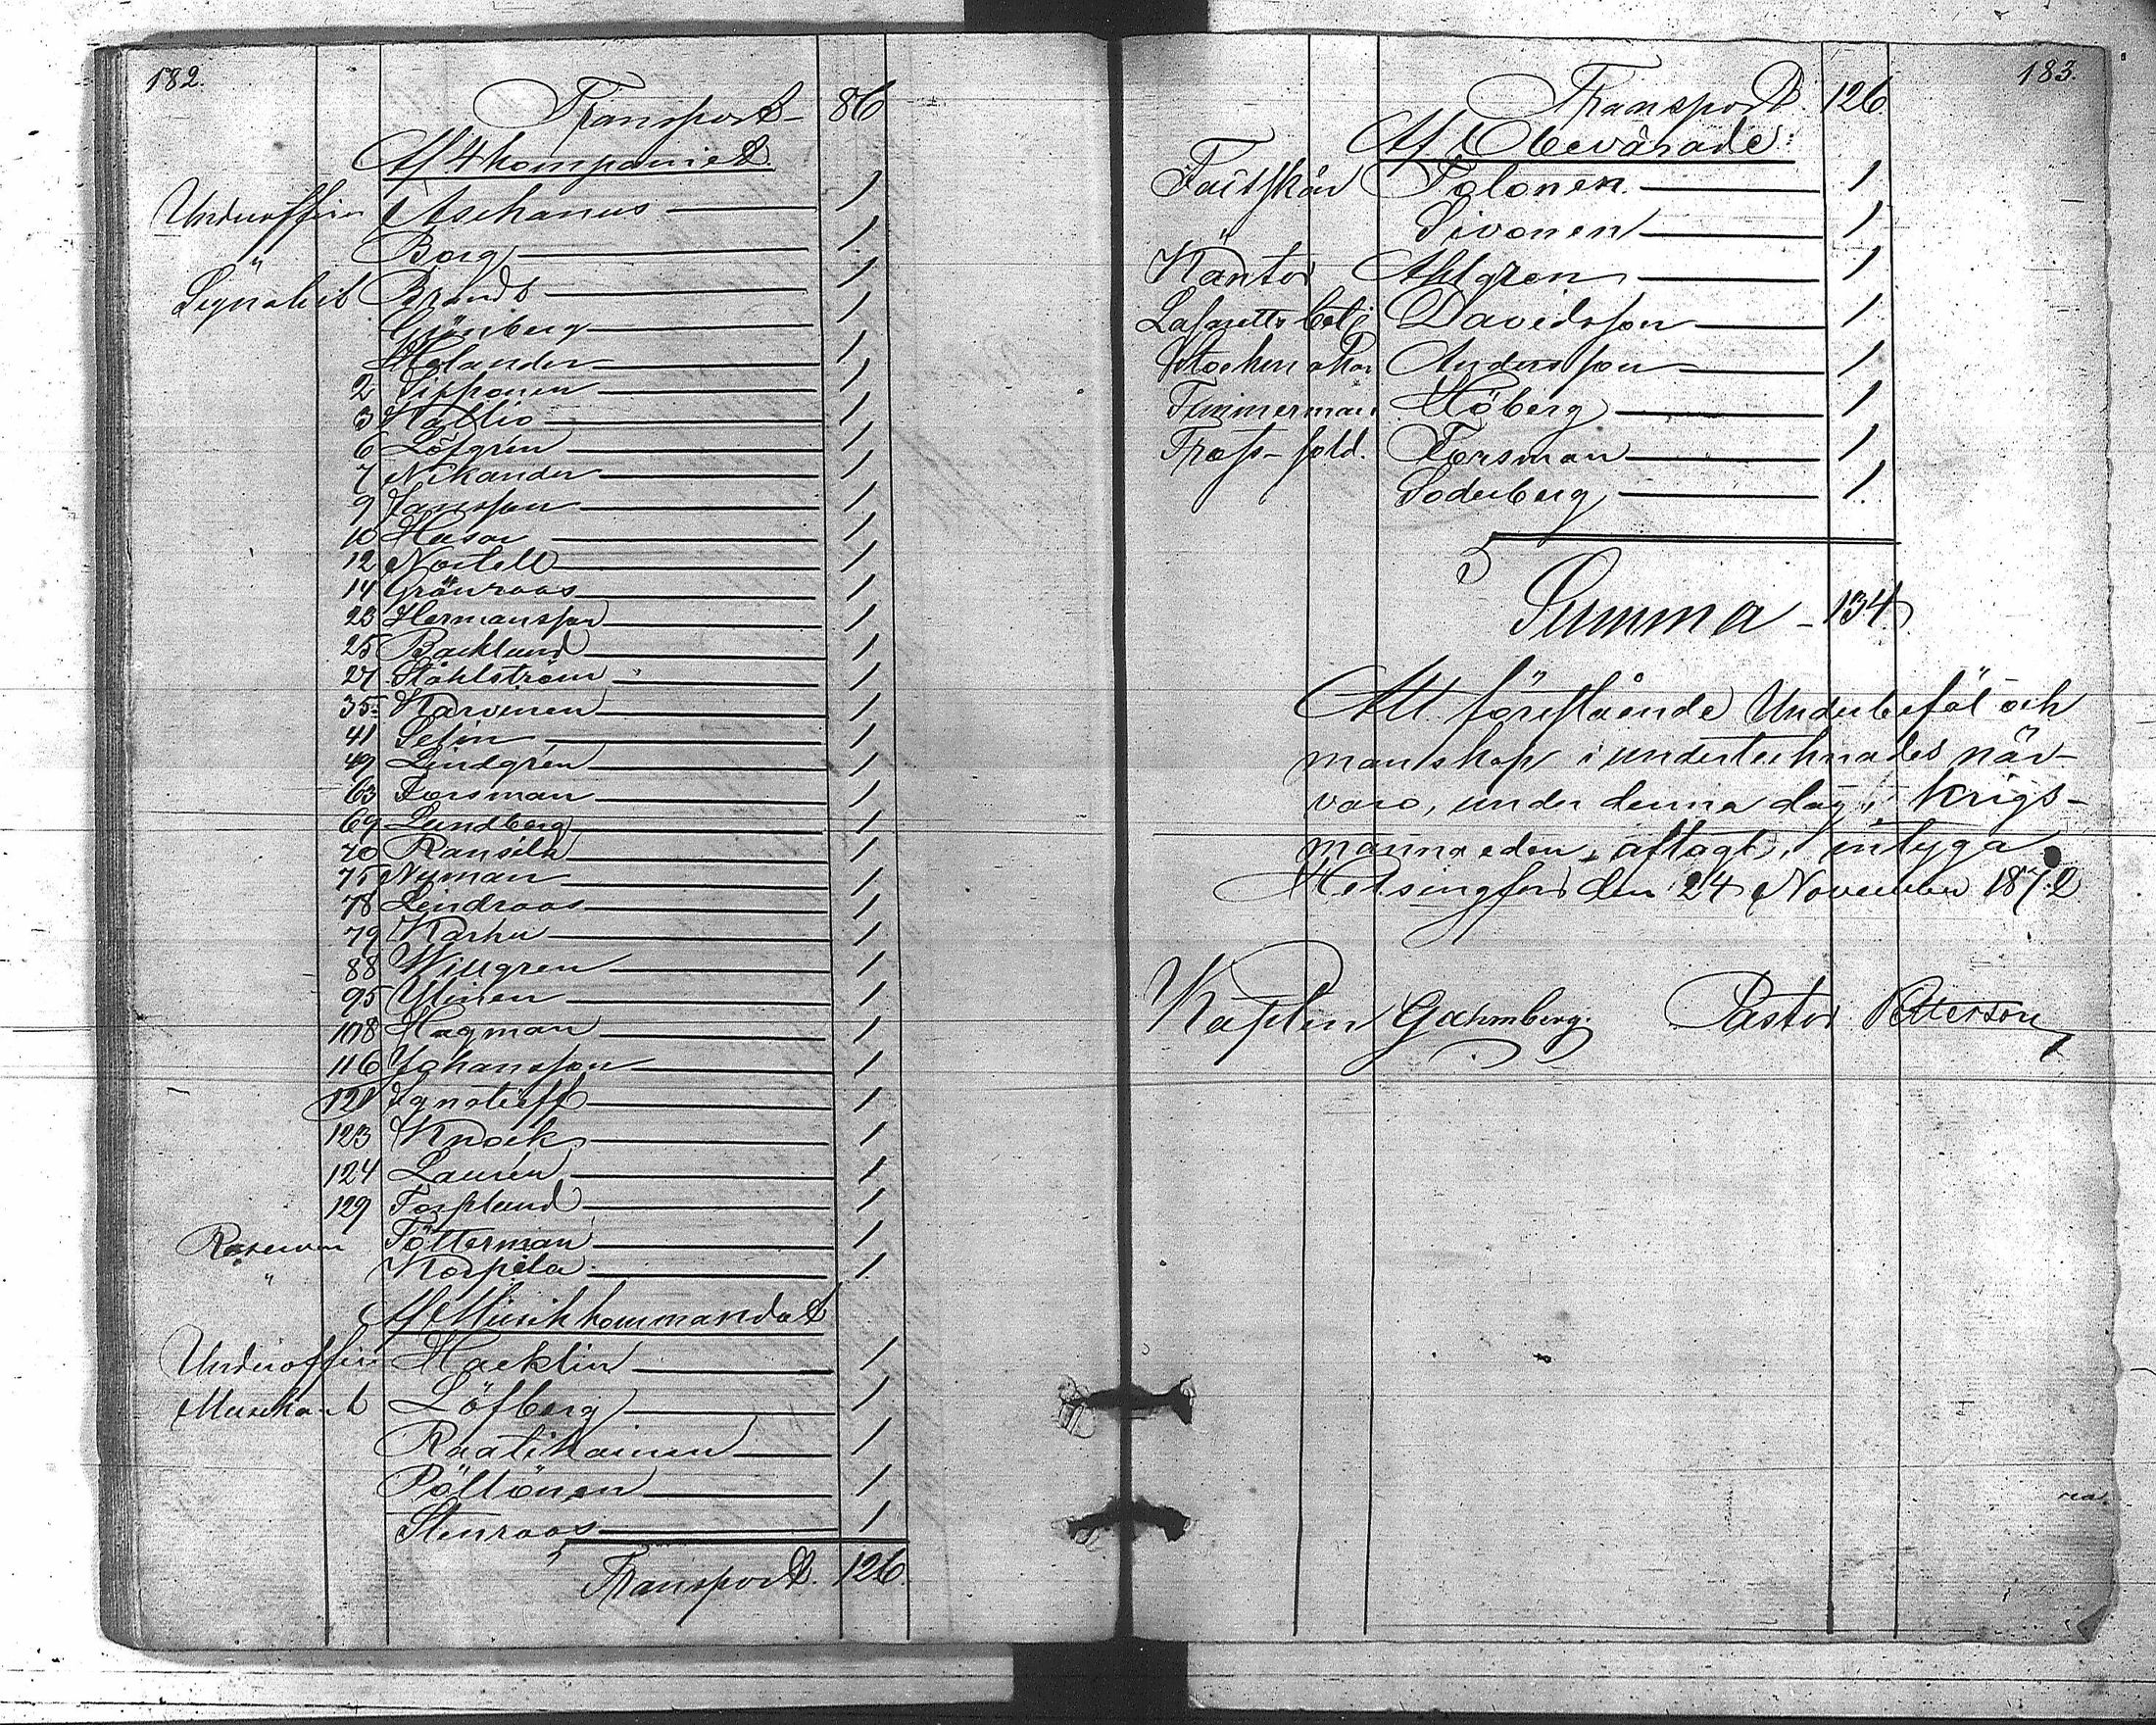 182.
Transport 86
Af 4 kompaniet.
Underofficer Aschanus 1
" Borg 1
Signalist Brandt 1
Grönberg 1
Helander 1
2 Sipponen 1
3 Kallio 1
6 Löfgrén 1
7 Nikander 1
9 Jansson 1
10 Hasar 1
12 Nortell 1
14 Grönroos 1
23 Hermansson 1
25 Backlund 1
27 Ståhlström 1
35 Karvinen 1
41 Selin 1
49 Lindgrén 1
63 Forsman 1
69 Lundberg 1
70 Ransila 1
75 Nyman 1
78 Lindroos 1
79 Karhu 1
88 Willgren 1
95 Ylinen 1
108 Hagman 1
116 Johansson 1
121 Ignatieff 1
123 Knock 1
124 Laurén 1
129 Forslund 1
Reserven Tötterman 1
" Korpela 1
Af Musikkommandot
Underofficer Hacklin 1
Musikant Löfberg 1
Raatikainen 1
Pöllönen 1
Stenroos 1
Transport. 126.
183.
Transport. 126
Af Obevärade:
Fältskär Tolonen 1
" Sivonen 1
Kantor Ahlgren 1
Lasaretts betj Davidsson 1
Andersson 1
Timmerman Höberg 1
Tross-sold. Forsman 1
Soderberg 1
Summa - 134
Att förestående Underbefäl och
manskap i undertecknades när-
varo, under denna dag, Krigs-
manna eden, aflagt, intyga.
Helsingfors den 24 November 1872
Kapten Gahmberg. Pastor Petterson